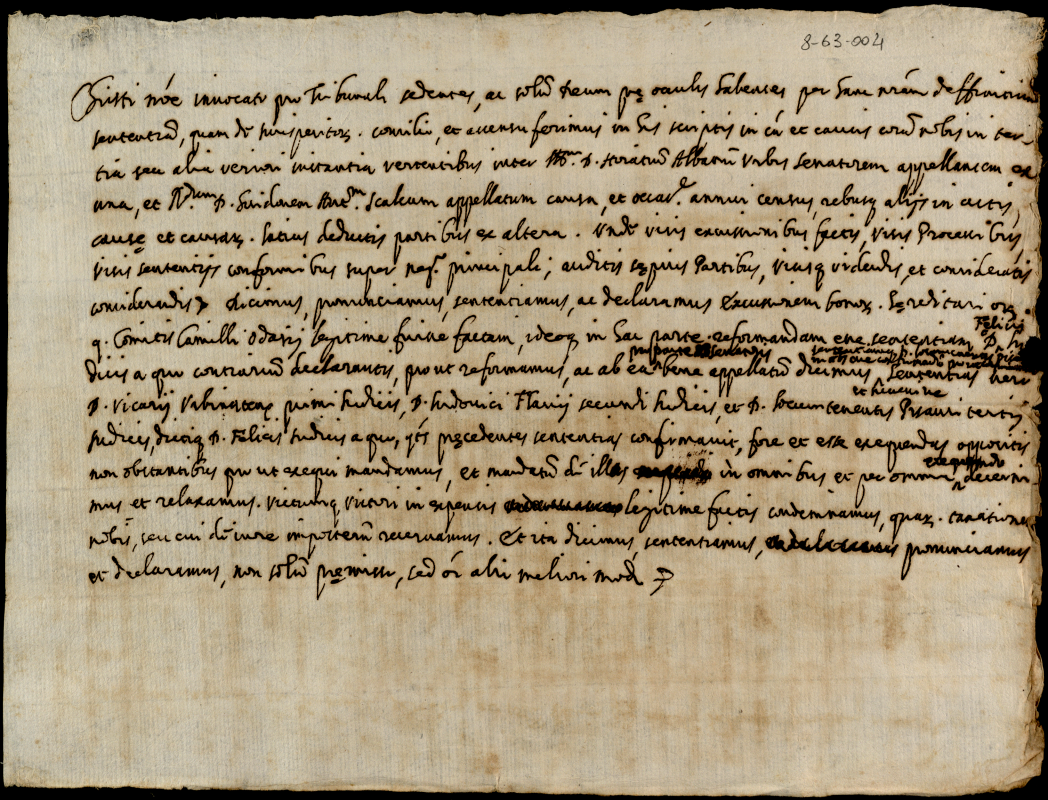 8-63-004
Christi nõe invocato pro Tribunali sedentes, ac solũ Deum prę oculis habentes per hanc nr̃am deffinitivam
sententiã, quam de Iurisperitoꝝ consilio, et assensu ferimus in his scriptis in cã et causis corã nobis in ter-
tia seu alia veriori instantia vertentibus inter D. Horatium Albanũ Urbis senatorem appellantem ex
una, et D. Scalcum appellatum causa, et occas.e annui census, rebusq alijs in actis
causę et causaꝝ latius deductis partibus ex altera. Unde visis excussionibus factis, visis Processibus
visis sententijs conformibus super neg.o principali; auditis sępius Partibus, visisq videndis, et consideratis
considerandis dicimus, pronunciamus, sententiamus, ac declaramus excussionem bonoꝝ hęreditarioꝝ
q. Comitis Camilli Odasij legitime fuisse factam, ideoq in hac parte reformandam esse sententiam D. Felicis Iu-
dicis a quo contrarium declarantis, prout reformamus, ac ab ea bene appellatũ dicimus, sententias vero
et huiusmodi
D. Vicarij Urbinaten primi Iudicis, D. Ludovici Flavij secundi Iudicis, et D. Locumtenentis Pisauri tertij
Iudicis, dictiq D. Felicis Iudicis a quo, pręcedentes sententias confirmavit, fore et esse exequendas oppositis
non obstantibus pro ut exequi mandamus, et mandatũ de illis exequendo in omnibus et per omnia decerni-
mus et relaxamus. Victumq victori in expensis legitime factis condemnamus, quaꝝ taxationem
nobis, seu cui de iure imposterũ reservamus. Et ita dicimus, sententiamus, pronunciamus
et declaramus, non solũ pręmisso, sed oĩ alio meliori modo